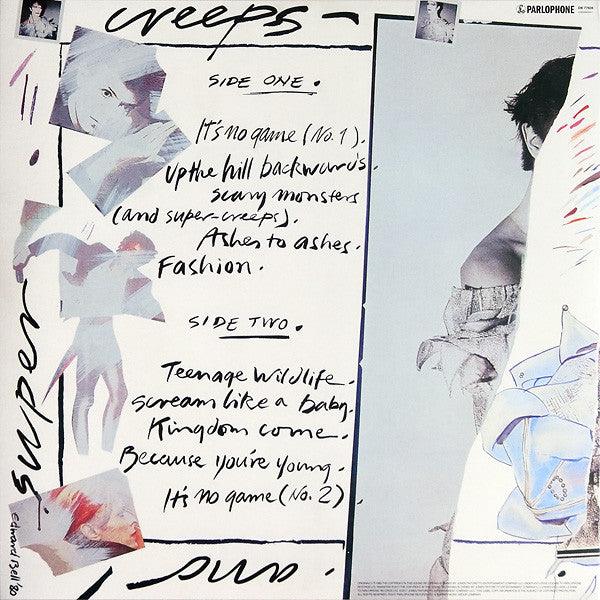 creeps
PARLOPHONE
SIDE ONE.
It's no game (No. 1).
Up the hill backwards.
scary monsters
(and super-creeps).
Ashes to ashes.
Fashion.
SIDE TWO.
Teenage Wildlife.
Scream like a baby.
Kingdom come.
Because you're young.
It's no game (No. 2).
super
Edward Bell '80
and